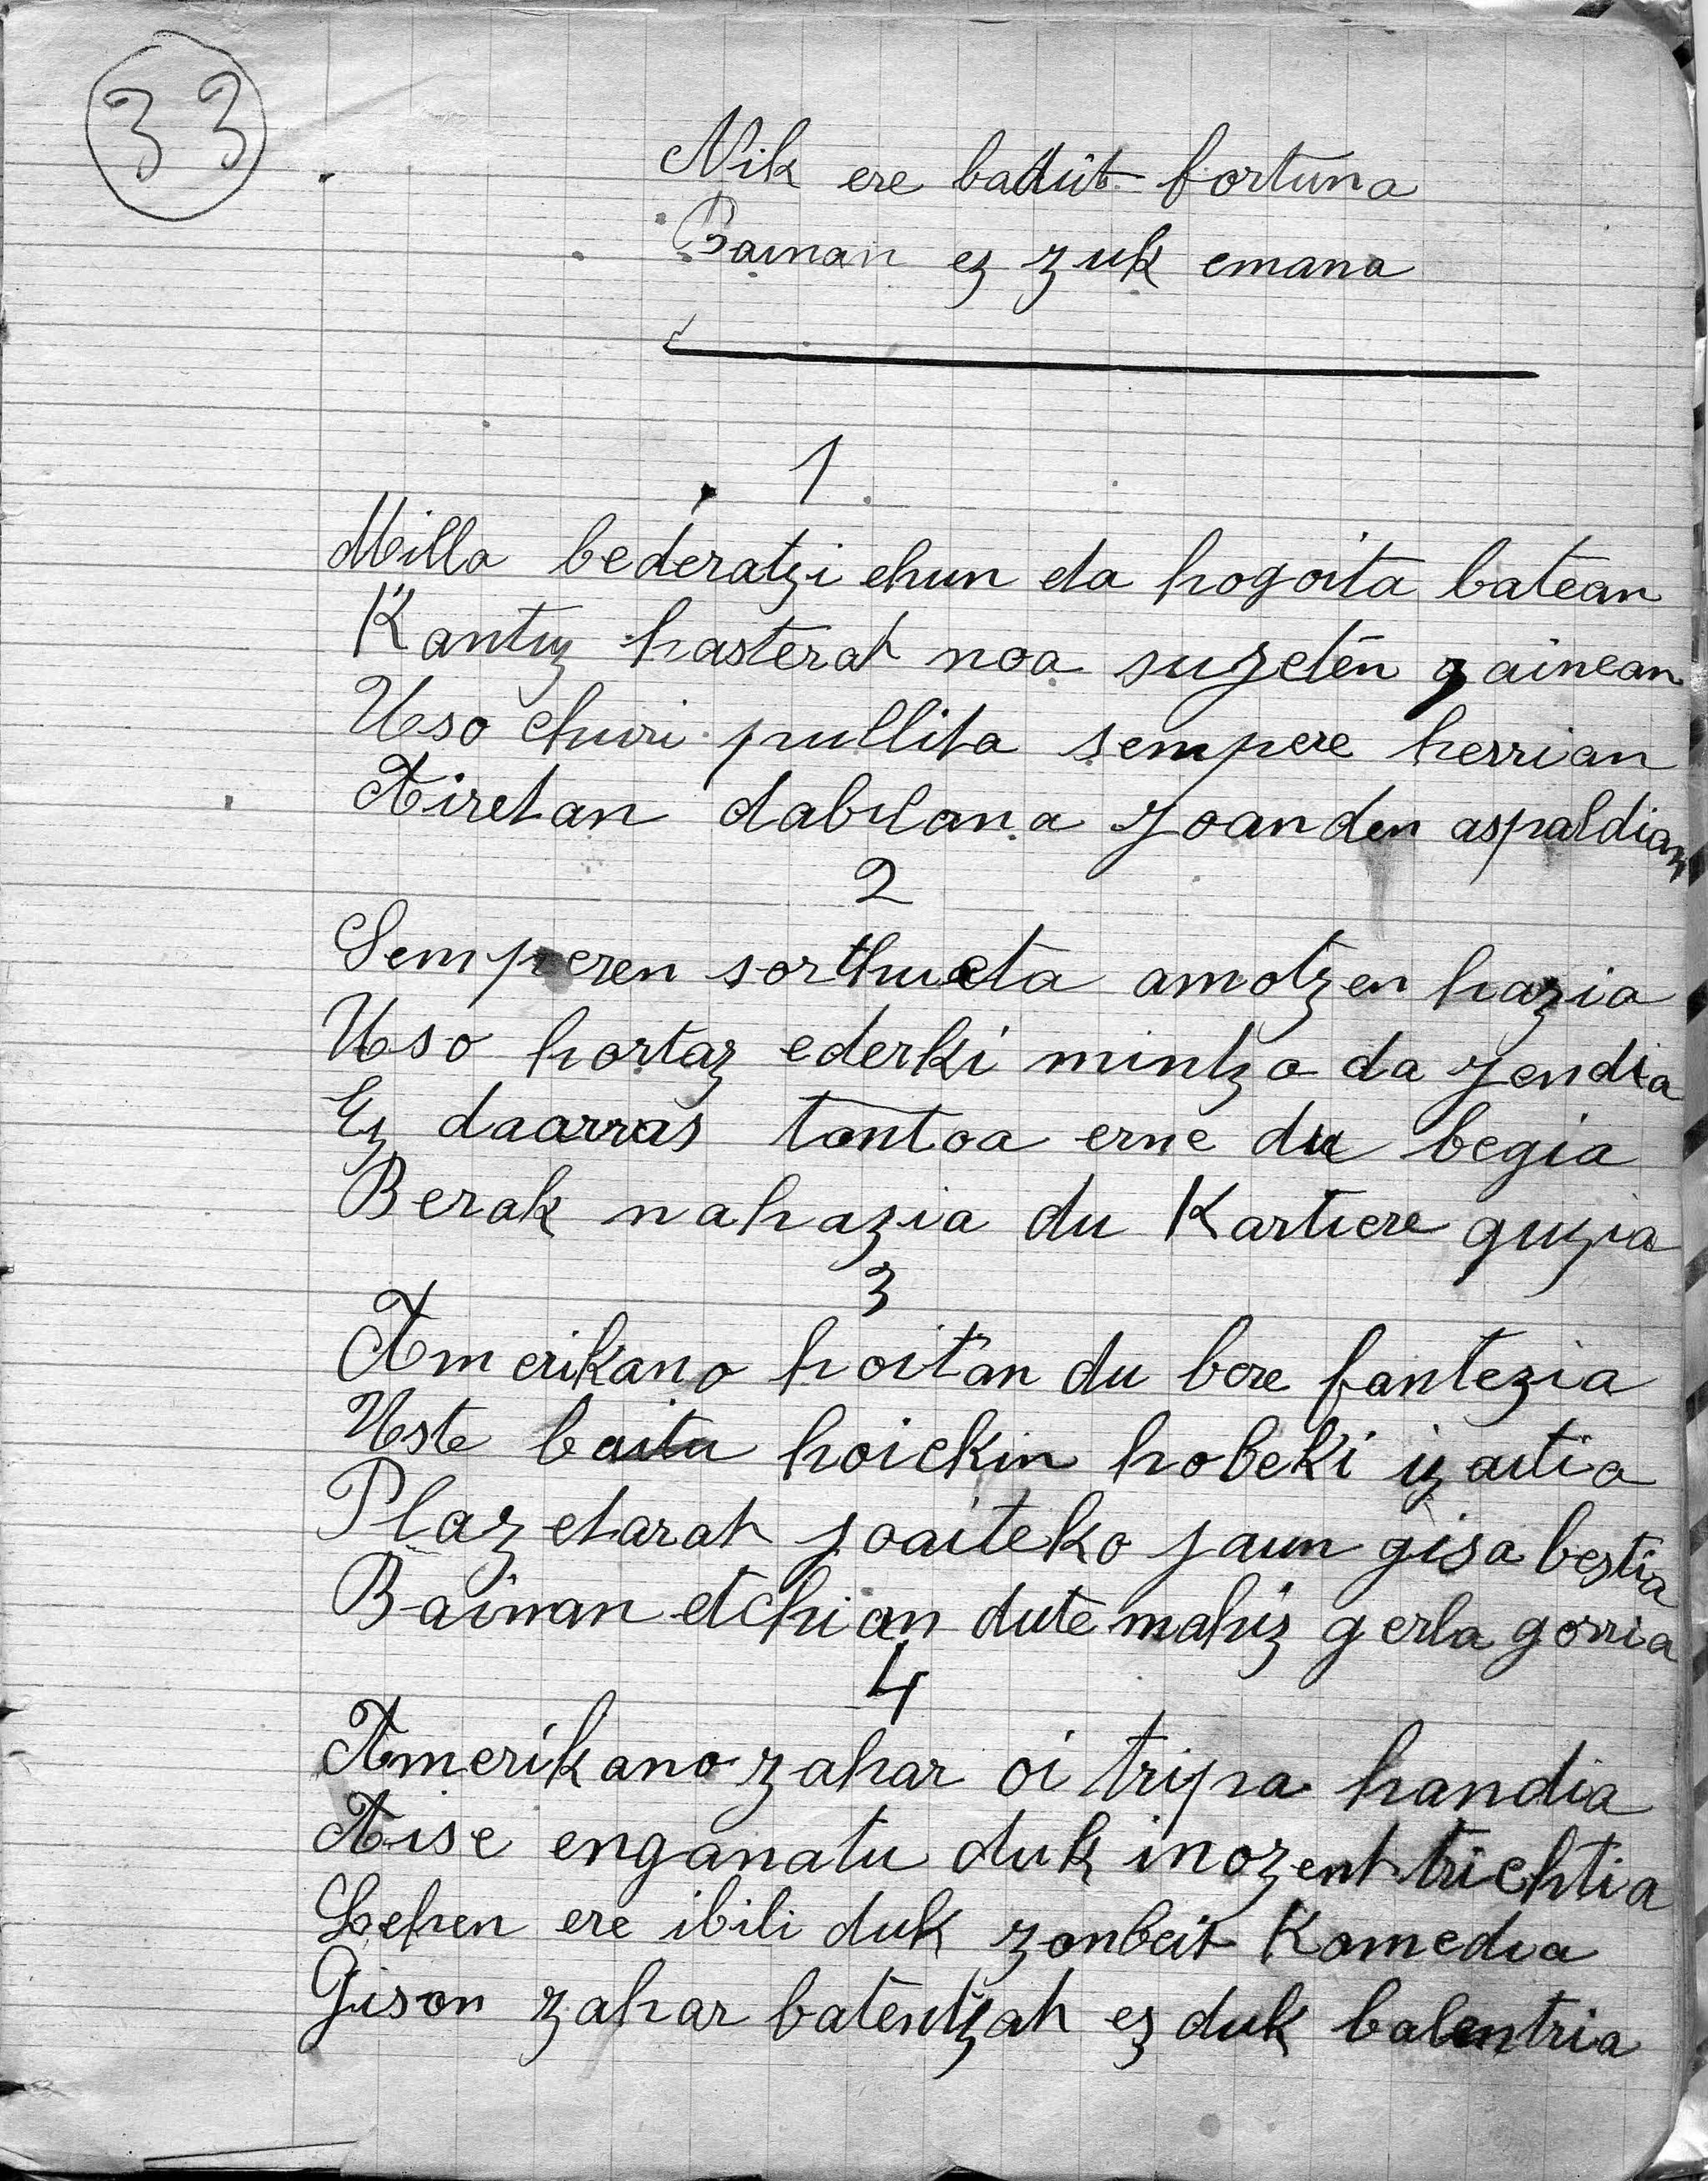 33
Nik ere badut fortuna
Bainan ez zuk emana
1
Milla bederatzi ehun da hogoita batean
Kantuz hasterat noa suyeten gainean
Uso churi pullita sempere herrian
Airetan dabilana joanden aspaldian
2
Semperen sorthueta amotzen hazia
Uso hortaz ederki mintzo da jendia
Ez daarras tontoa erne du begia
Berak nahazia du Kartiere guzia
3
Amerikano hoitan du bere fantezia
Uste baitu hoickin hobeki izaitia
Plazetarat joaiteko jaun gisa bestia
Bainan etchian dute mahiz gerla gorria
4
Amerikano zahar oi tripa handia
Aise enganatu duk inozent trichtia
Lehen ere ibili duk zonbeit Komedia
Gison zahar batentzat ez duk balentria